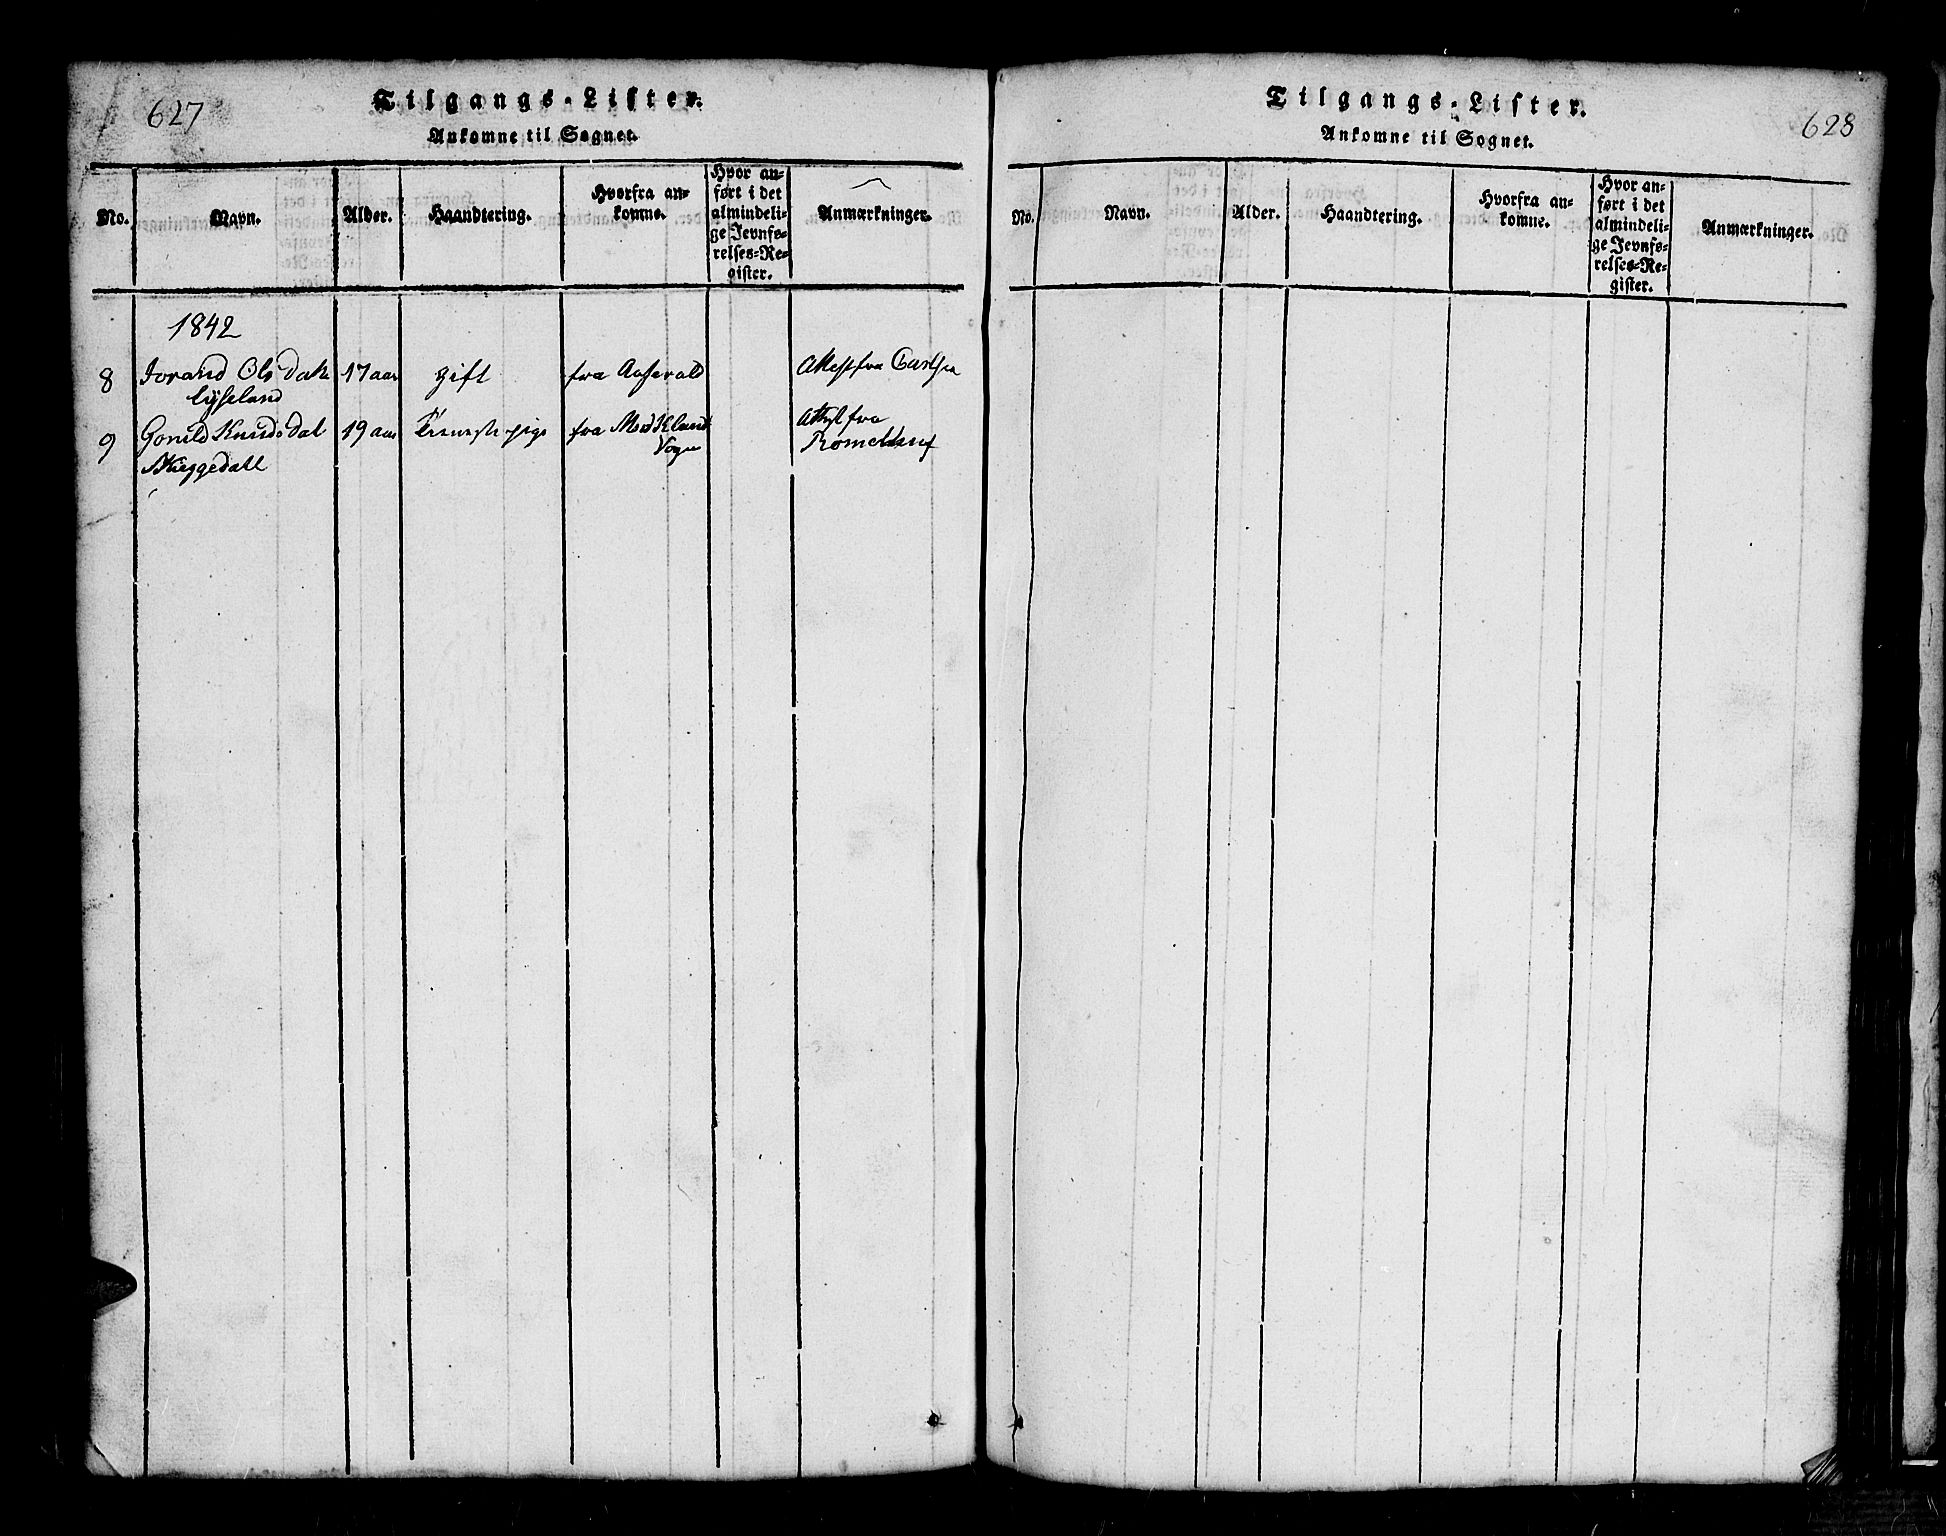 627
Tilgangs-Lister.
Ankomne til Sognet.
No.
Navn.
Alder.
Haandtering.
Hvorfra an-
komne.
Hvor an-
ført i det
almindeli-
ge Jevnfø-
relses-Re-
gister.
Anmærkninger.
1842
8 Jorand Ols Dat 17 aar gift fra Aaserald Attest fra
Lyseland
9 Gonild Knuds Dat 19 aar fra Attest fra
Skieggedall
628
Tilgangs-Lister.
Ankomne til Sognet.
No.
Navn.
Alder.
Haandtering.
Hvorfra an-
komne.
Hvor an-
ført i det
almindeli-
ge Jevnfø-
relses-Re-
gister.
Anmærkninger.